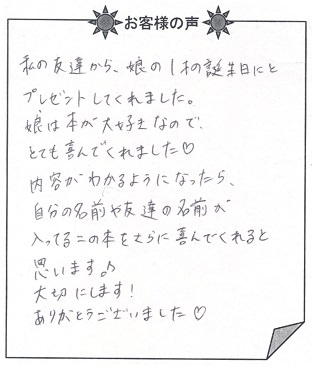 お客様の声
私の友達から、娘の1才の誕生日にと
プレゼントしてくれました。
娘は本が大好きなので、
とても喜んでくれました♡
内容がわかるようになったら、
自分の名前や友達の名前が
入ってるこの本をさらに喜んでくれると
思います♪
大切にします!
ありがとうございました♡